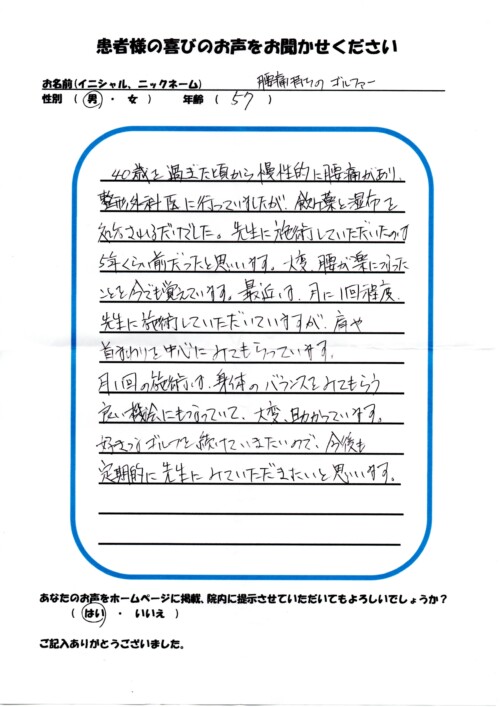 患者様の喜びのお声をお聞かせください
お名前(イニシャル、ニックネーム) 腰痛持ちの ゴルファー
性別 ( 男 ・ 女 ) 年齢 ( 57 )
40歳を過ぎた頃から慢性的に腰痛があり、
整形外科医に行っていましたが、飲み薬と湿布を
処方されるだけでした。先生に施術していただいたのは
5年くらい前だったと思います。大変、腰が楽になった
ことを今でも覚えています。最近は、月に1回程度、
先生に施術していただいていますが、肩や
首まわりを中心にみてもらっています。
月1回の施術は、身体のバランスをみてもらう
良い機会にもなっていて、大変、助かっています。
好きなゴルフを続けていきたいので、今後も
定期的に先生にみていただきたいと思います。
あなたのお声をホームページに掲載、院内に提示させていただいてもよろしいでしょうか?
( はい ・ いいえ )
ご記入ありがとうございました。